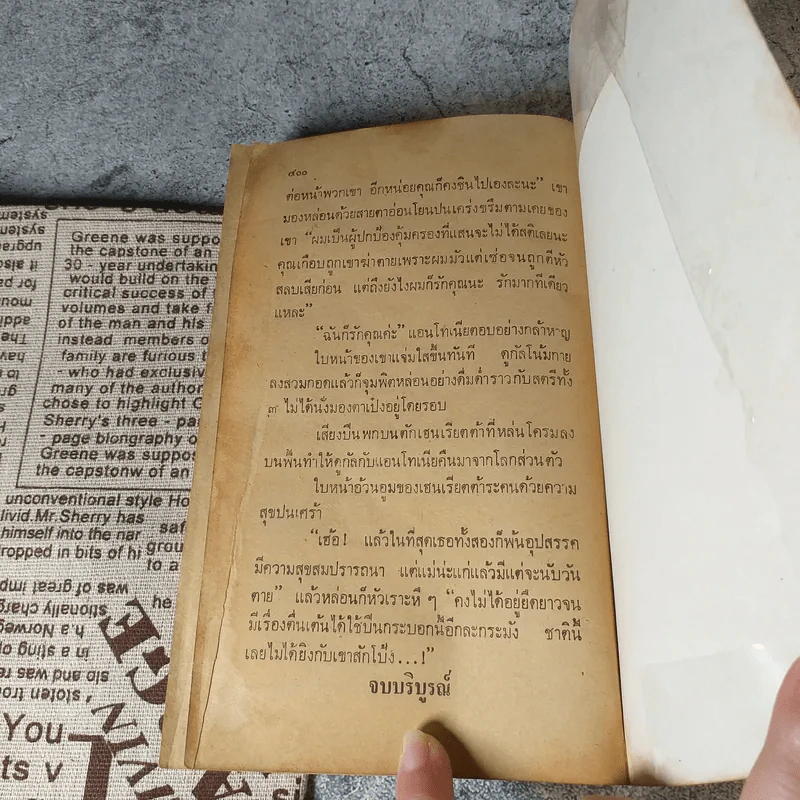 ๔๐๐
ต่อหน้าพวกเขา อีกหน่อยคุณก็คงชินไปเองละนะ” เขา
มองหล่อนด้วยสายตาอ่อนโยนปนเคร่งขรึมตามเคยของ
เขา “ผมเป็นผู้ปกป้องคุ้มครองที่แสนจะไม่ได้สติเลยนะ
คุณเกือบถูกเขาฆ่าตายเพราะผมมัวแต่เซ่อจนถูกตีหัว
สลบเสียก่อน แต่ถึงยังไงผมก็รักคุณนะ รักมากทีเดียว
แหละ”
“ฉันก็รักคุณค่ะ” แอนโทเนียตอบอย่างกล้าหาญ
ใบหน้าของเขาแจ่มใสขึ้นทันที ดูกัลโน้มกาย
ลงสวมกอดแล้วก็จุมพิตหล่อนอย่างดื่มด่ำราวกับสตรีทั้ง
๓ ไม่ได้นั่งมองตาเป๋งอยู่โดยรอบ
เสียงปืนพกบนตักเฮนเรียตต้าที่หล่นโครมลง
บนพื้นทำให้ดูกัลกับแอนโทเนียคืนมาจากโลกส่วนตัว
ใบหน้าอ้วนอูมของเฮนเรียตต้าระคนด้วยความ
สุขปนเศร้า
“เฮ้อ! แล้วในที่สุดเธอทั้งสองก็พ้นอุปสรรค
มีความสุขสมปรารถนา แต่แม่น่ะแก่แล้วมีแต่จะนับวัน
ตาย” แล้วหล่อนก็หัวเราะหึ ๆ “คงไม่ได้อยู่ยืดยาวจน
มีเรื่องตื่นเต้นได้ใช้ปืนกระบอกนี้อีกละกระมัง ชาตินี้
เลยไม่ได้ยิงกับเขาสักโป้ง...!”
จบบริบูรณ์
Greene was suppo
the capstone of an
30 - year undertakin
would build on the
critical success of
volumes and take f
of the man and his
instead members o
family are furious t
- who had exclusiv
many of the author
chose to highlight G
Sherry's three - pa
- page biongraphy o
Greene was suppos
the capstonw of an
unconventional style Ho
livid.Mr.Sherry has
himself into the nar
dropped in bits of hi
saf
grou
to a
he
was of great imp
stionally charg
h.a Norweg
in a sting op
slo and was re
stolen tron
You
ts v